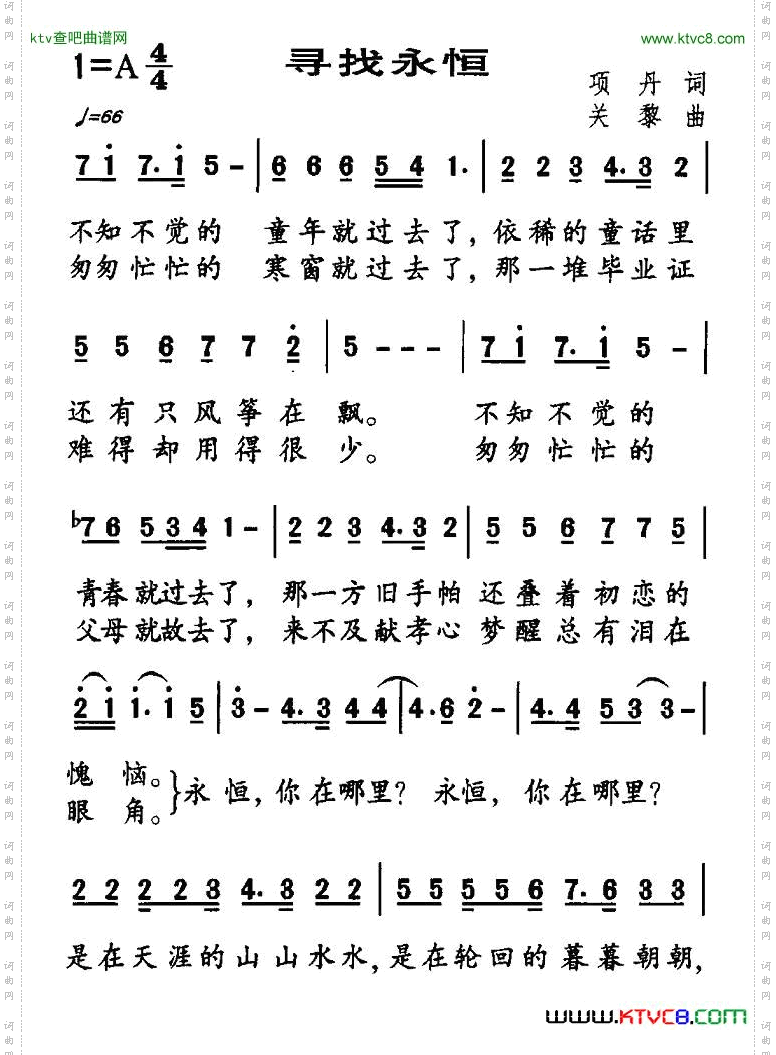 ktv查吧曲谱网
www.ktvc8.com
1=A 4/4
寻找永恒
项丹词
♩=66
关黎曲
7 i 7. i 5 - | 6 6 6 5 4 1. | 2 2 3 4. 3 2 |
不知不觉的 童年就过去了，依稀的童话里
匆匆忙忙的 寒窗就过去了，那一堆毕业证
5 5 6 7 7 2̇ | 5 - - - | 7 i 7. i 5 - |
还有只风筝在飘。 不知不觉的
难得却用得很少。 匆匆忙忙的
♭7 6 5 3 4 1 - | 2 2 3 4. 3 2 | 5 5 6 7 7 5 |
青春就过去了，那一方旧手帕还叠着初恋的
父母就故去了，来不及献孝心梦醒总有泪在
2̇ i i. i 5 | 3 - 4. 3 4 4 | 4. 6 2̇ - | 4. 4 5 3 3 - |
愧恼。
眼角。
}永恒，你在哪里？永恒，你在哪里？
2 2 2 2 3 4. 3 2 2 | 5 5 5 5 6 7. 6 3 3 |
是在天涯的山山水水，是在轮回的暮暮朝朝，
www.KTVC8.com